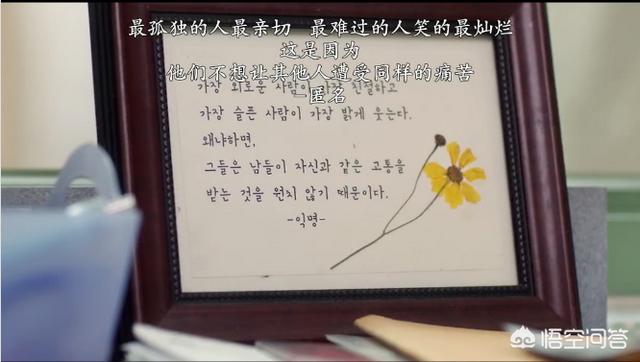 最孤独的人最亲切 最难过的人笑的最灿烂
这是因为
他们不想让其他人遭受同样的痛苦
-匿名
가장 외로운 사람이 가장 친절하고
가장 슬픈 사람이 가장 밝게 웃는다.
왜냐하면,
그들은 남들이 자신과 같은 고통을
받는 것을 원치 않기 때문이다.
-익명-
悟空问答